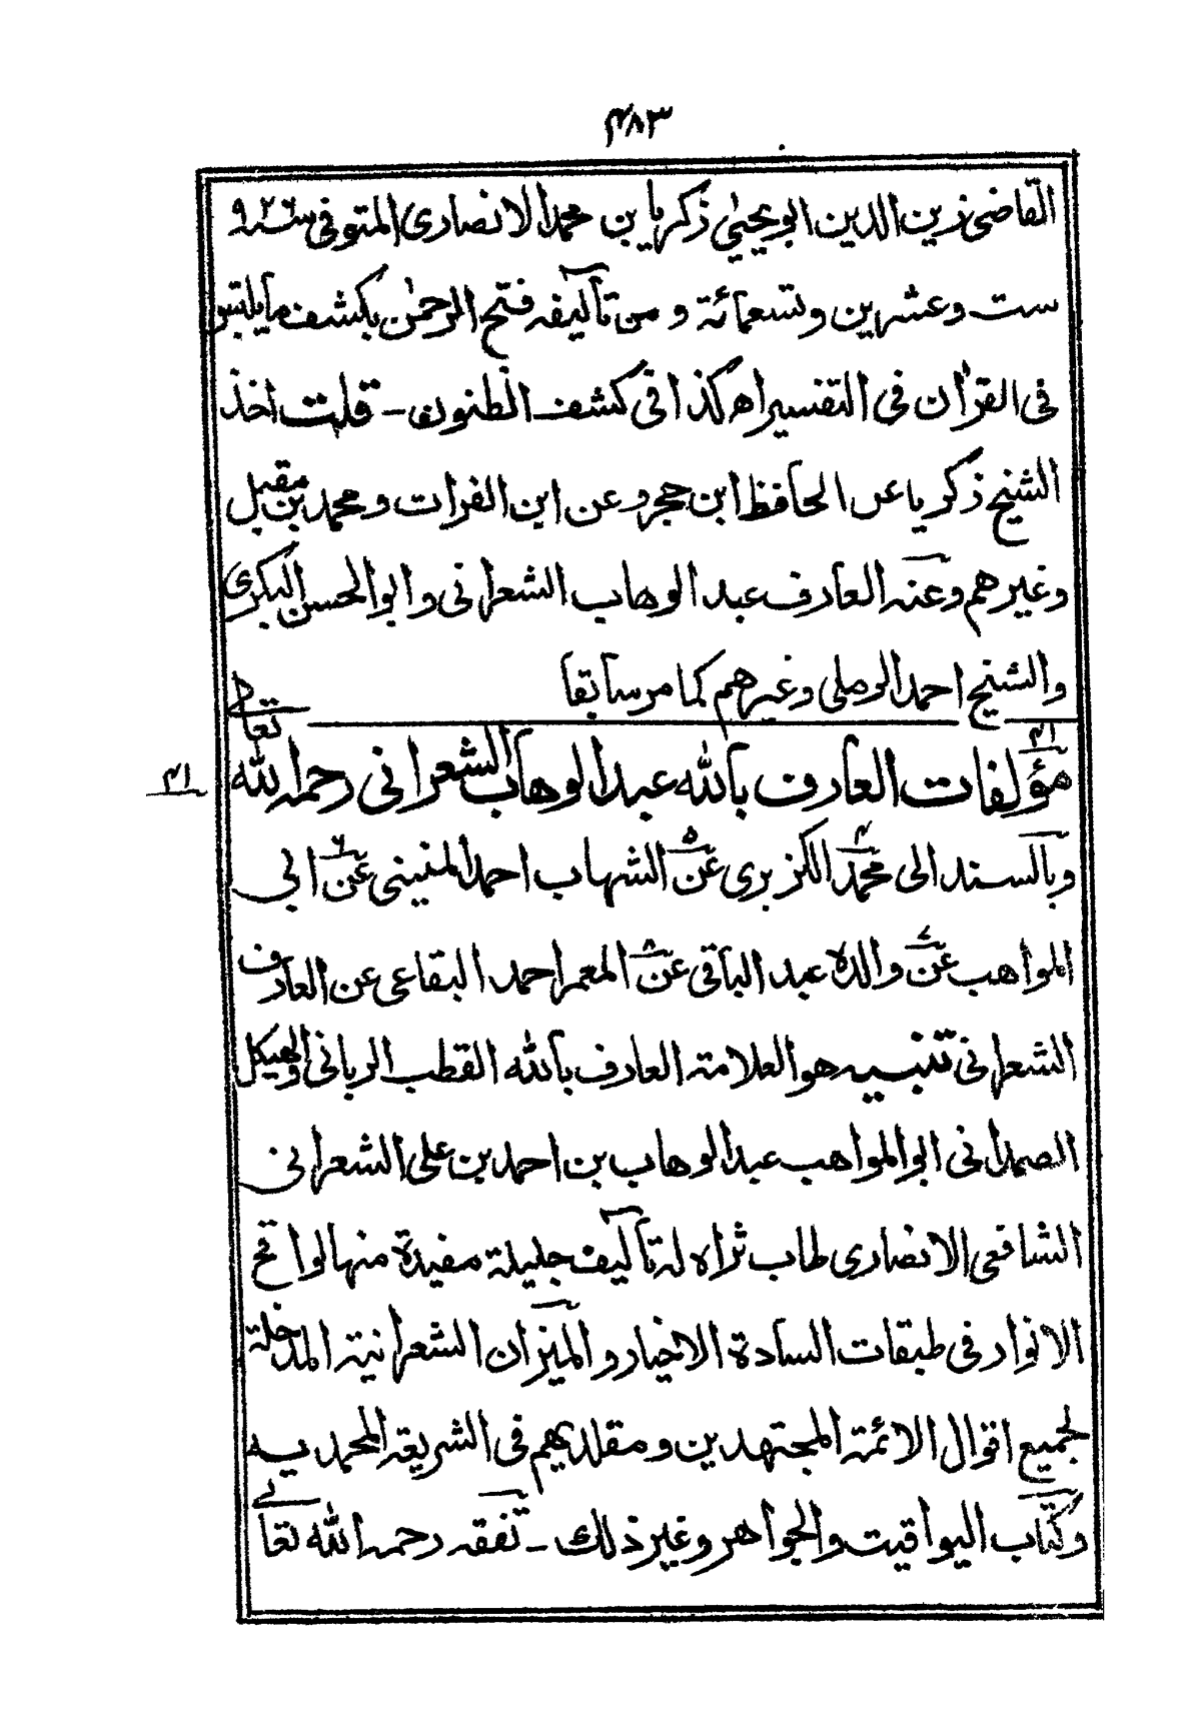 ۴۸۳
القاضى زين الدين ابو يحيىٰ زكريا بن محمد الانصارى المتوفى سنة ۹۲۶
ست وعشرين وتسعمائة و من تآليفه فتح الرحمٰن بكشف ما يلتبس
فى القرآن فى التفسير اه كذا فى كشف الظنون - قلت اخذ
الشيخ زكريا عن الحافظ ابن حجر وعن ابن الفرات و محمد بن مقبل
وغيرهم وعنه العارف عبد الوهاب الشعرانى وابو الحسن البكرى
والشيخ احمد الرملى وغيرهم كما مر سابقا
۴۱ مؤلفات العارف بالله عبد الوهاب الشعرانى رحمه الله تعالى ۴۱
وبالسند الى محمد ۴ الكزبرى عن ۵ الشهاب احمد المنينى عن ۶ ابى
المواهب عن ۷ والده عبد الباقى عن ۸ المعمر احمد البقاعى عن العارف
الشعرانى تنبيه هو العلامة العارف بالله القطب الربانى والهيكل
الصمدانى ابو المواهب عبد الوهاب بن احمد بن على الشعرانى
الشافعى الانصارى طاب ثراه له تآليف جليلة مفيدة منها لواقح
الانوار فى طبقات السادة الاخيار و الميزان الشعرانية المدخلة
لجميع اقوال الائمة المجتهدين و مقلديهم فى الشريعة المحمديه
وكتاب اليواقيت والجواهر وغير ذلك - تفقه رحمه الله تعالى